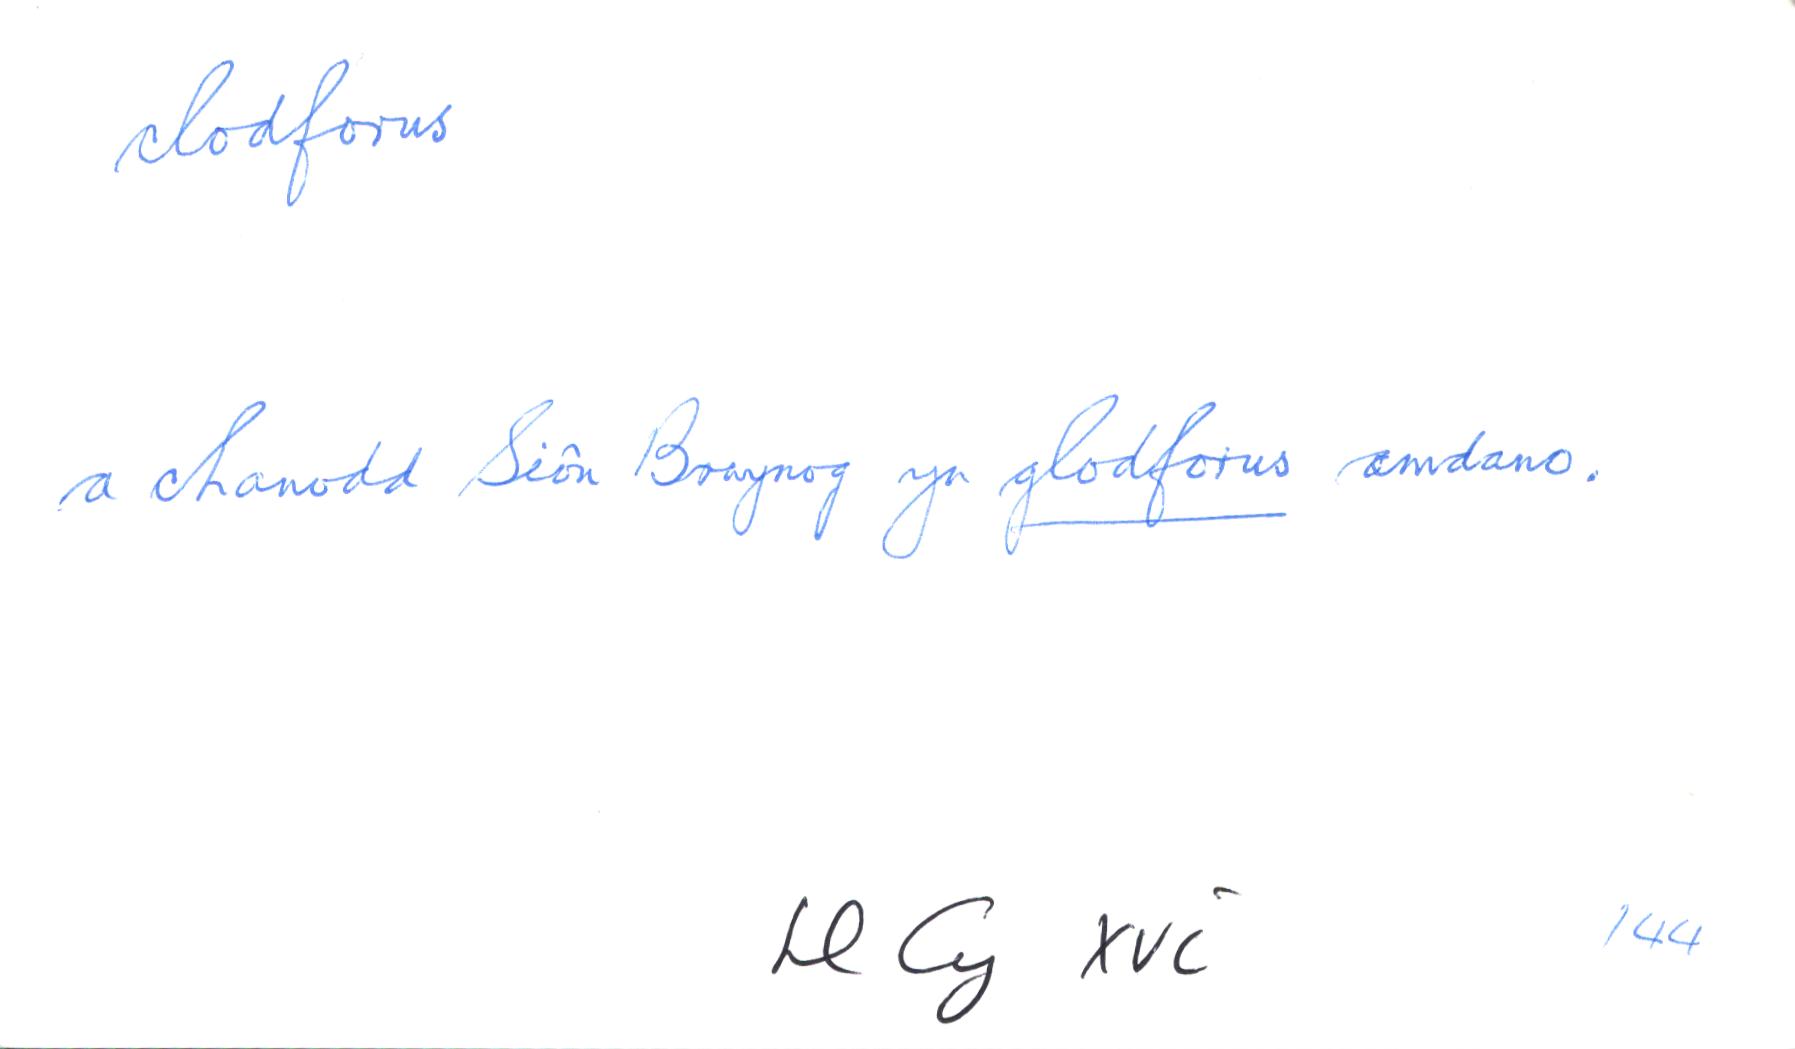 clodforus
a chanodd Siôn Brwynog yn glodforus amdano.
Ll Cy XVI 144